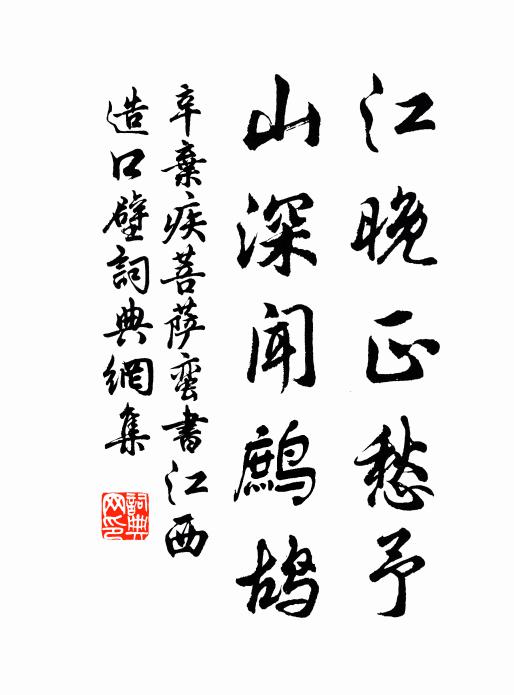 江晚正愁予
山深聞鷓鴣
辛棄疾菩薩蠻書江西
造口壁詞典網集
詞典
网印